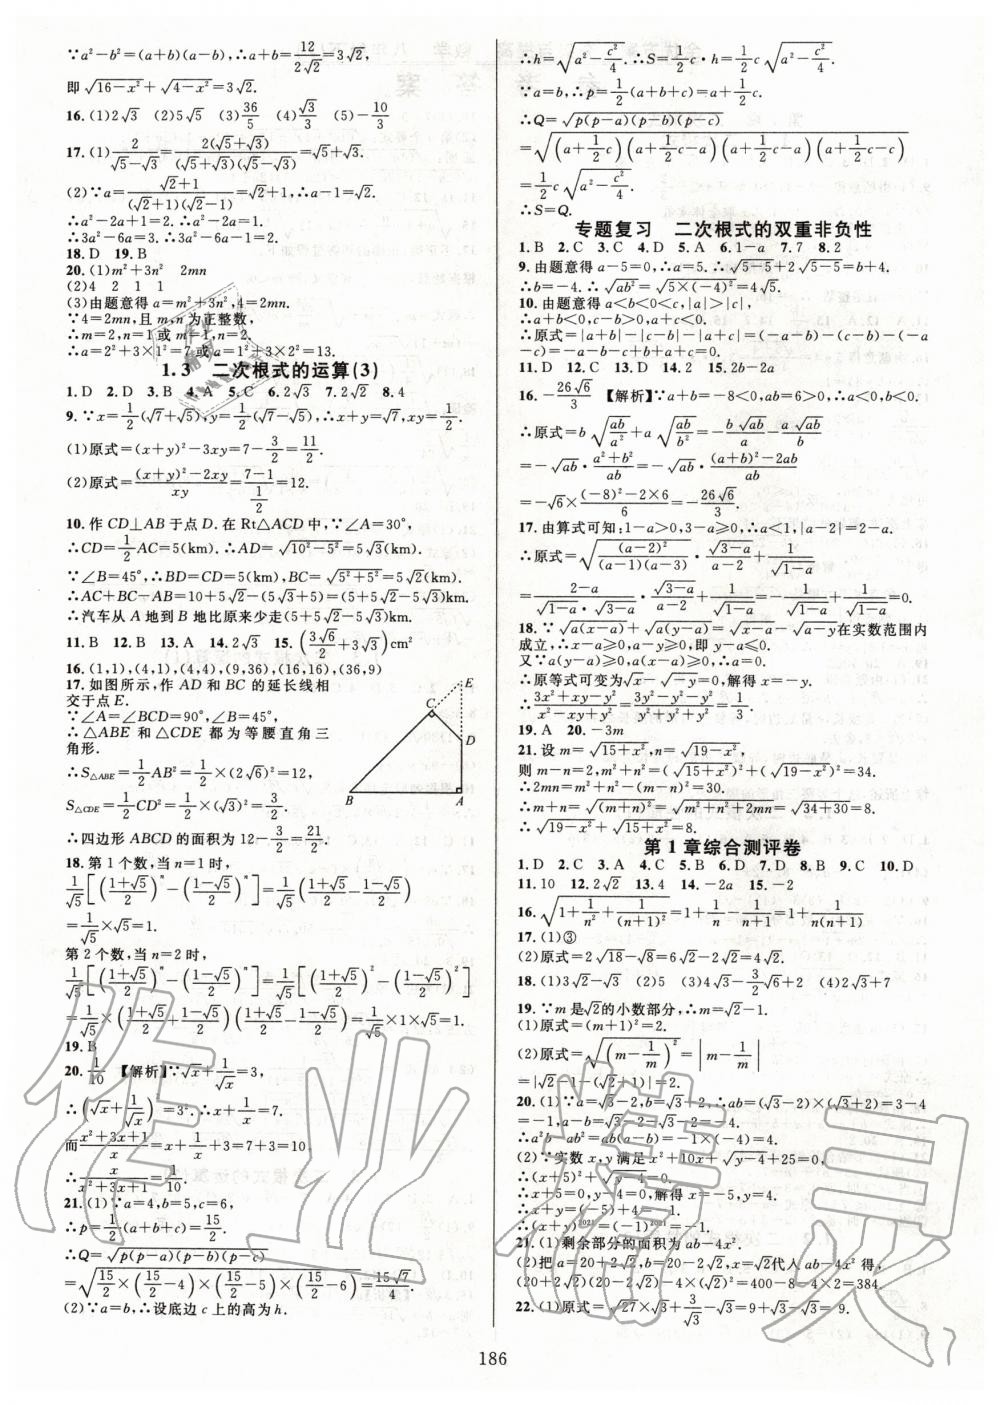 ∵a²-b²=(a+b)(a-b),∴a+b=12/(2√2)=3√2,
即√(16-x²)+√(4-x²)=3√2.
16.(1)2√3 (2)5√5 (3)36/5 (4)√3/3 (5)-10/3
17.(1)2/(√5-√3)=2(√5+√3)/((√5+√3)(√5-√3))=√5+√3.
(2)∵a=(√2+1)/((√2+1)(√2-1))=√2+1,∴a-1=√2.
∴a²-2a+1=2.∴a²-2a=1.
∴3a²-6a=3.∴3a²-6a-1=2.
18.D 19.B
20.(1)m²+3n² 2mn
(2)4 2 1 1
(3)由题意得a=m²+3n²,4=2mn.
∵4=2mn,且m,n为正整数,
∴m=2,n=1或m=1,n=2.
∴a=2²+3×1²=7或a=1²+3×2²=13.
1.3 二次根式的运算(3)
1.D 2.D 3.B 4.A 5.C 6.2√3 7.2√2 8.4
9.∵x=1/2(√7+√5),y=1/2(√7-√5),∴x+y=√7,xy=1/2.
(1)原式=(x+y)²-3xy=7-3/2=11/2.
(2)原式=((x+y)²-2xy)/xy=(7-1)/(1/2)=12.
10.作CD⊥AB于点D.在Rt△ACD中,∵∠A=30°,
∴CD=1/2AC=5(km).∴AD=√(10²-5²)=5√3(km).
∵∠B=45°,∴BD=CD=5(km),BC=√(5²+5²)=5√2(km).
∴AC+BC-AB=10+5√2-(5√3+5)=(5+5√2-5√3)km.
∴汽车从A地到B地比原来少走(5+5√2-5√3)km.
11.B 12.B 13.A 14.2√3 15.(3√6/2+3√3)cm²
16.(1,1),(4,1),(4,4),(9,36),(16,16),(36,9)
17.如图所示,作AD和BC的延长线相
交于点E.
∵∠A=∠BCD=90°,∠B=45°,
∴△ABE和△CDE都为等腰直角三
角形.
∴S△ABE=1/2AB²=1/2×(2√6)²=12,
S△CDE=1/2CD²=1/2×(√3)²=3/2.
∴四边形ABCD的面积为12-3/2=21/2.
E
C
D
B
A
18.第1个数,当n=1时,
1/√5[((1+√5)/2)ⁿ-((1-√5)/2)ⁿ]=1/√5((1+√5)/2-(1-√5)/2)
=1/√5×√5=1.
第2个数,当n=2时,
1/√5[((1+√5)/2)ⁿ-((1-√5)/2)ⁿ]=1/√5[((1+√5)/2)²-((1-√5)/2)²]
=1/√5×((1+√5)/2+(1-√5)/2)((1+√5)/2-(1-√5)/2)=1/√5×1×√5=1.
19.B
20.1/10 【解析】∵√x+1/√x=3,
∴(√x+1/√x)²=3².∴x+1/x=7.
而(x²+3x+1)/x=x+1/x+3=7+3=10,
∴x/(x²+3x+1)=1/10.
21.(1)∵a=4,b=5,c=6,
∴p=1/2(a+b+c)=15/2.
∴Q=√(p(p-a)(p-b)(p-c))
=√(15/2×(15/2-4)×(15/2-5)×(15/2-6))=15√7/4.
(2)∵a=b,∴设底边c上的高为h.
∴h=√(a²-c²/4).∴S=1/2c·h=1/2c√(a²-c²/4).
∵a=b,∴p=1/2(a+b+c)=a+1/2c.
∴Q=√(p(p-a)(p-b)(p-c))
=√((a+1/2c)(a+1/2c-a)(a+1/2c-a)(a+1/2c-c))
=1/2c√(a²-c²/4).
∴S=Q.
专题复习 二次根式的双重非负性
1.B 2.C 3.C 4.D 5.A 6.1-a 7.7 8.2
9.由题意得a-5=0.∴a=5.∴√(5-5)+2√(5-5)=b+4.
∴b=-4.∴√(ab²)=√(5×(-4)²)=4√5.
10.由题意得a<b<0<c,|a|>|c|,
∴a+b<0,c-b>0,a+c<0.
∴原式=|a+b|-|c-b|-|a+c|=(-a-b)-(c-b)-(-a
-c)=-a-b-c+b+a+c=0.
11.D 12.D 13.D 14.2 15.2b-2a
16.-26√6/3 【解析】∵a+b=-8<0,ab=6>0,∴a<0,b<0.
∴原式=b√(ab/a²)+a√(ab/b²)=-b√ab/a-a√ab/b
=-√ab·(a²+b²)/ab=-√ab·((a+b)²-2ab)/ab
=-√6×((-8)²-2×6)/6=-26√6/3.
17.由算式可知:1-a>0,3-a>0,∴a<1,|a-2|=2-a.
∴原式=√((a-2)²/((a-1)(a-3)))·√(3-a)/(a-2)+1/√(1-a)
=(2-a)/(√(1-a)·√(3-a))·√(3-a)/(a-2)+1/√(1-a)=-1/√(1-a)+1/√(1-a)=0.
18.∵√(a(x-a))+√(a(y-a))=√(x-a)-√(a-y)在实数范围内
成立,∴x-a≥0,a-y≥0,即y≤a≤0.
又∵a(y-a)≥0,a(x-a)≥0,∴a=0.
∴原等式可变为√x-√(-y)=0,解得x=-y.
∴(3x²+xy-y²)/(x²-xy+y²)=(3y²-y²-y²)/(y²+y²+y²)=y²/3y²=1/3.
19.A 20.-3m
21.设m=√(15+x²),n=√(19-x²),
则m-n=2,m²+n²=(√(15+x²))²+(√(19-x²))²=34.
∴2mn=m²+n²-(m-n)²=30.
∴m+n=√((m+n)²)=√(m²+n²+2mn)=√(34+30)=8.
∴√(19-x²)+√(15+x²)=8.
第1章综合测评卷
1.D 2.C 3.A 4.C 5.B 6.D 7.D 8.B 9.C 10.D
11.10 12.2√2 13.4 14.-2a 15.-2
16.√(1+1/n²+1/(n+1)²)=1+1/n-1/(n+1)=1+1/(n(n+1))
17.(1)③
(2)原式=2√18-√8=6√2-2√2=4√2.
18.(1)3√2-√3 (2)5 (3)4√3-3/2√6+2 (4)5√2
19.∵m是√2的小数部分,∴m=√2-1.
(1)原式=(m+1)²=2.
(2)原式=√((m-1/m)²)=|m-1/m|
=|√2-1-(√2+1)|=2.
20.(1)∵a=√3-2,b=√3+2,∴ab=(√3-2)×(√3+2)=3-4
=-1,a-b=√3-2-√3-2=-4.
∴a²b-ab²=ab(a-b)=-1×(-4)=4.
(2)∵实数x,y满足x²+10x+√(y-4)+25=0,
∴(x+5)²+√(y-4)=0.
∴x+5=0,y-4=0,解得x=-5,y=4.
∴x+y=(-5)+4=-1.
∴(x+y)²⁰²¹=(-1)²⁰²¹=-1.
21.(1)剩余部分的面积为ab-4x².
(2)把a=20+2√2,b=20-2√2,x=√2代入ab-4x²得,
(20+2√2)(20-2√2)-4×(√2)²=400-8-4×2=384.
22.(1)原式=√27×√3+3/√3-√3=9+√3-√3=9.
186